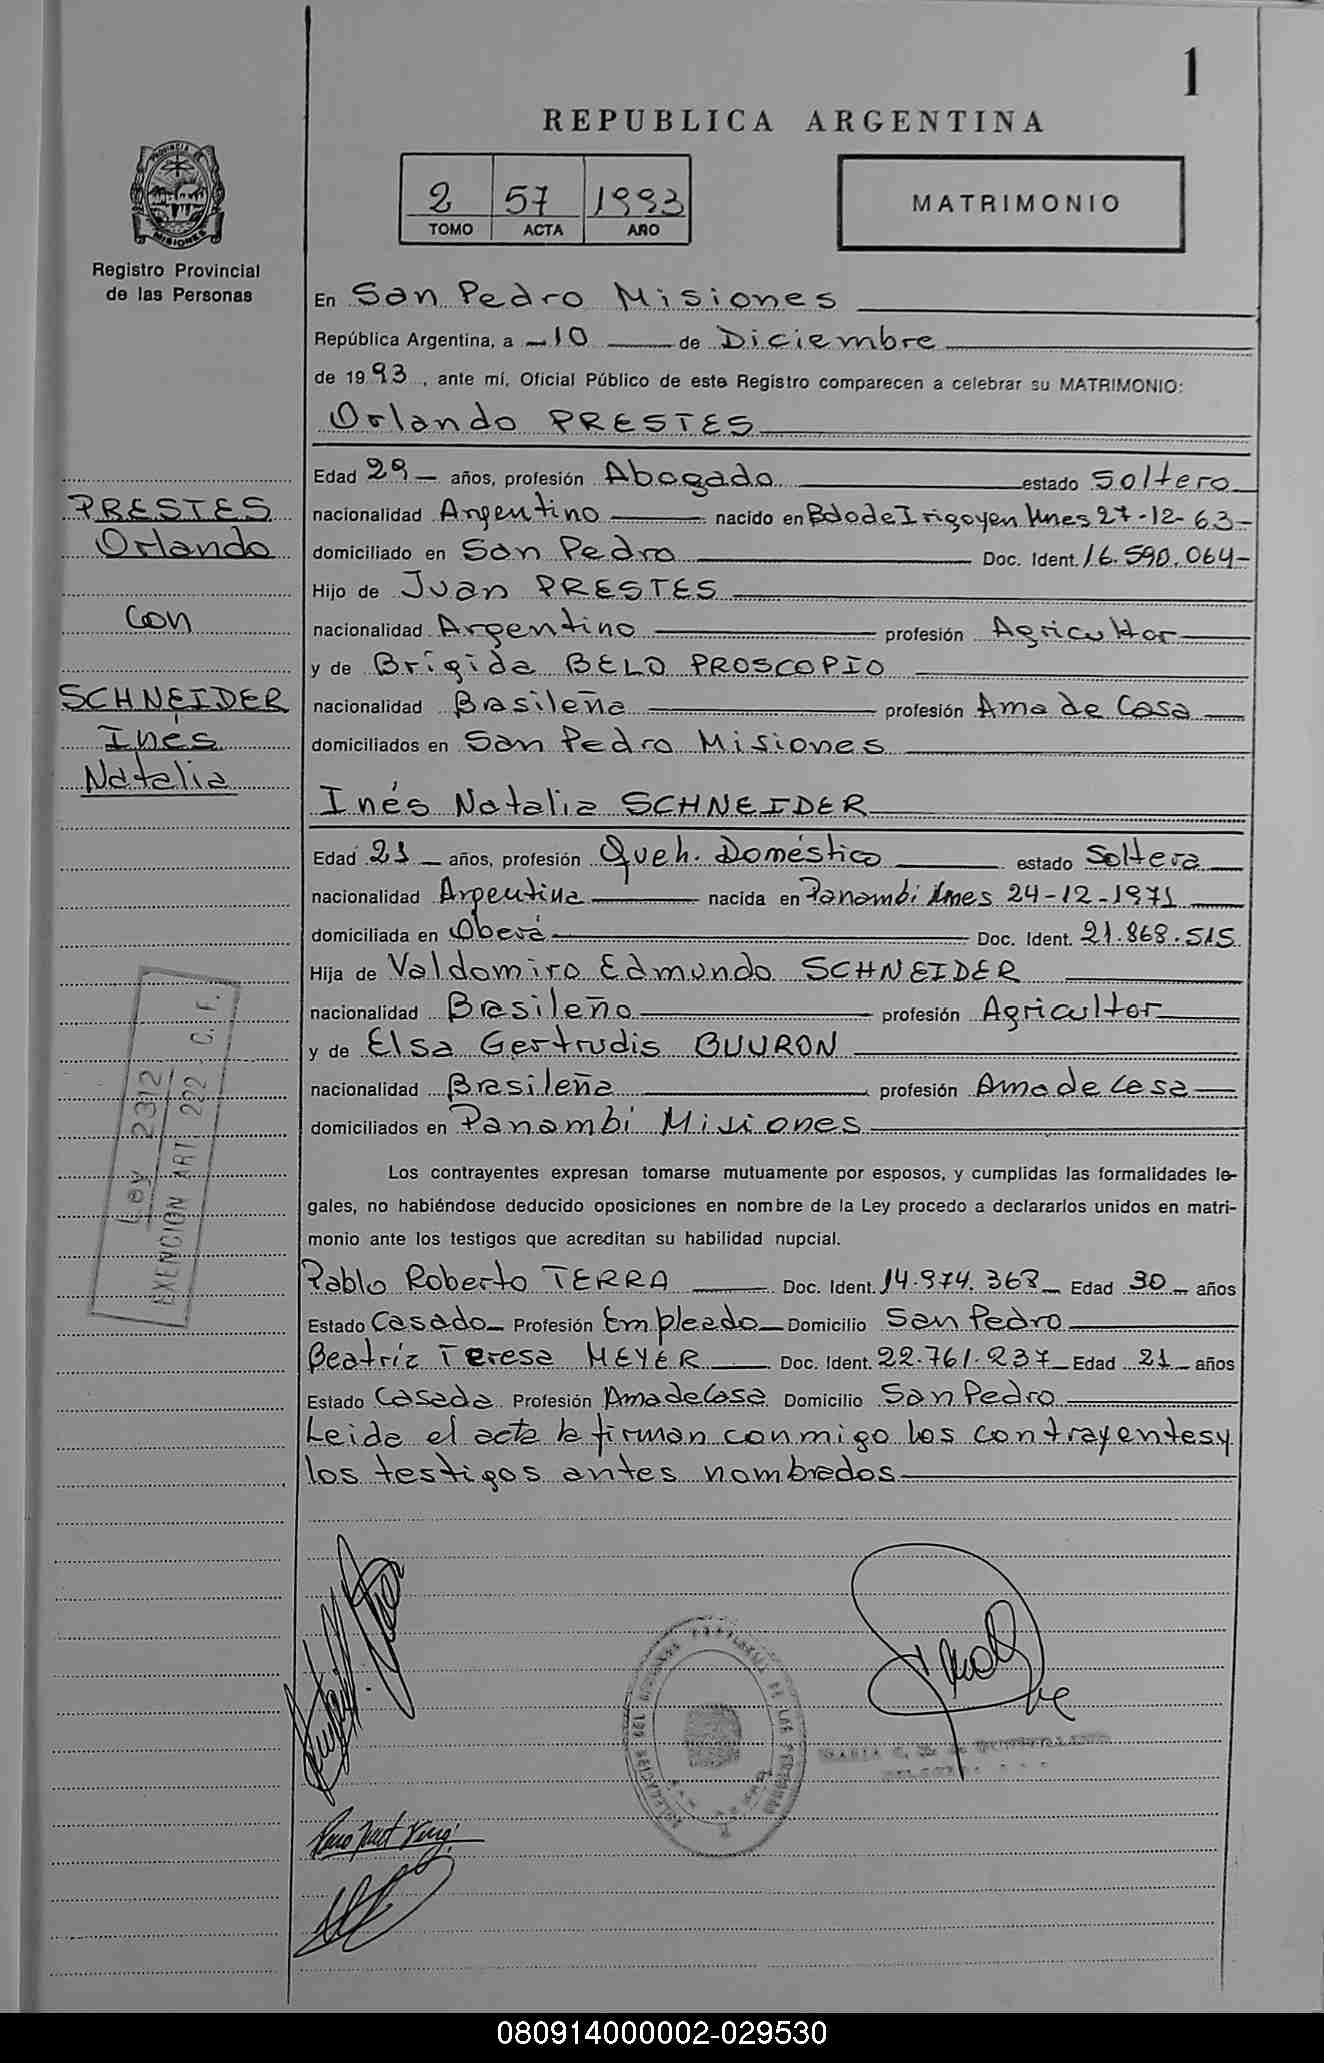 1
REPUBLICA ARGENTINA
PROVINCIA DE
MISIONES
Registro Provincial
de las Personas
2 57 1993
TOMO ACTA AÑO
MATRIMONIO
En San Pedro Misiones
República Argentina, a 10 de Diciembre
de 1993, ante mí, Oficial Público de este Registro comparecen a celebrar su MATRIMONIO:
Orlando PRESTES
Edad 29 años, profesión Abogado estado Soltero
nacionalidad Argentino nacido en Bdo de Irigoyen Mnes 27-12-63-
domiciliado en San Pedro Doc. Ident. 16.590.064-
Hijo de Juan PRESTES
nacionalidad Argentino profesión Agricultor
y de Brígida BELO PROSCOPIO
nacionalidad Brasileña profesión Ama de Casa
domiciliados en San Pedro Misiones
Inés Natalia SCHNEIDER
Edad 21 años, profesión Queh. Doméstico estado Soltera
nacionalidad Argentina nacida en Panambí Mnes 24-12-1971
domiciliada en Oberá Doc. Ident. 21.868.515
Hija de Valdomiro Edmundo SCHNEIDER
nacionalidad Brasileño profesión Agricultor
y de Elsa Gertrudis BUURON
nacionalidad Brasileña profesión Ama de Casa
domiciliados en Panambí Misiones
Los contrayentes expresan tomarse mutuamente por esposos, y cumplidas las formalidades le-
gales, no habiéndose deducido oposiciones en nombre de la Ley procedo a declararlos unidos en matri-
monio ante los testigos que acreditan su habilidad nupcial.
Pablo Roberto TERRA Doc. Ident. 14.974.368 Edad 30 años
Estado Casado Profesión Empleado Domicilio San Pedro
Beatriz Teresa MEYER Doc. Ident. 22.761.237 Edad 21 años
Estado Casada Profesión Ama de Casa Domicilio San Pedro
Leida el acta la firman conmigo los contrayentes y
los testigos antes nombrados
PRESTES
Orlando
con
SCHNEIDER
Inés
Natalia
Ley 2312
EXENCION ART. 222 C. F.
080914000002-029530